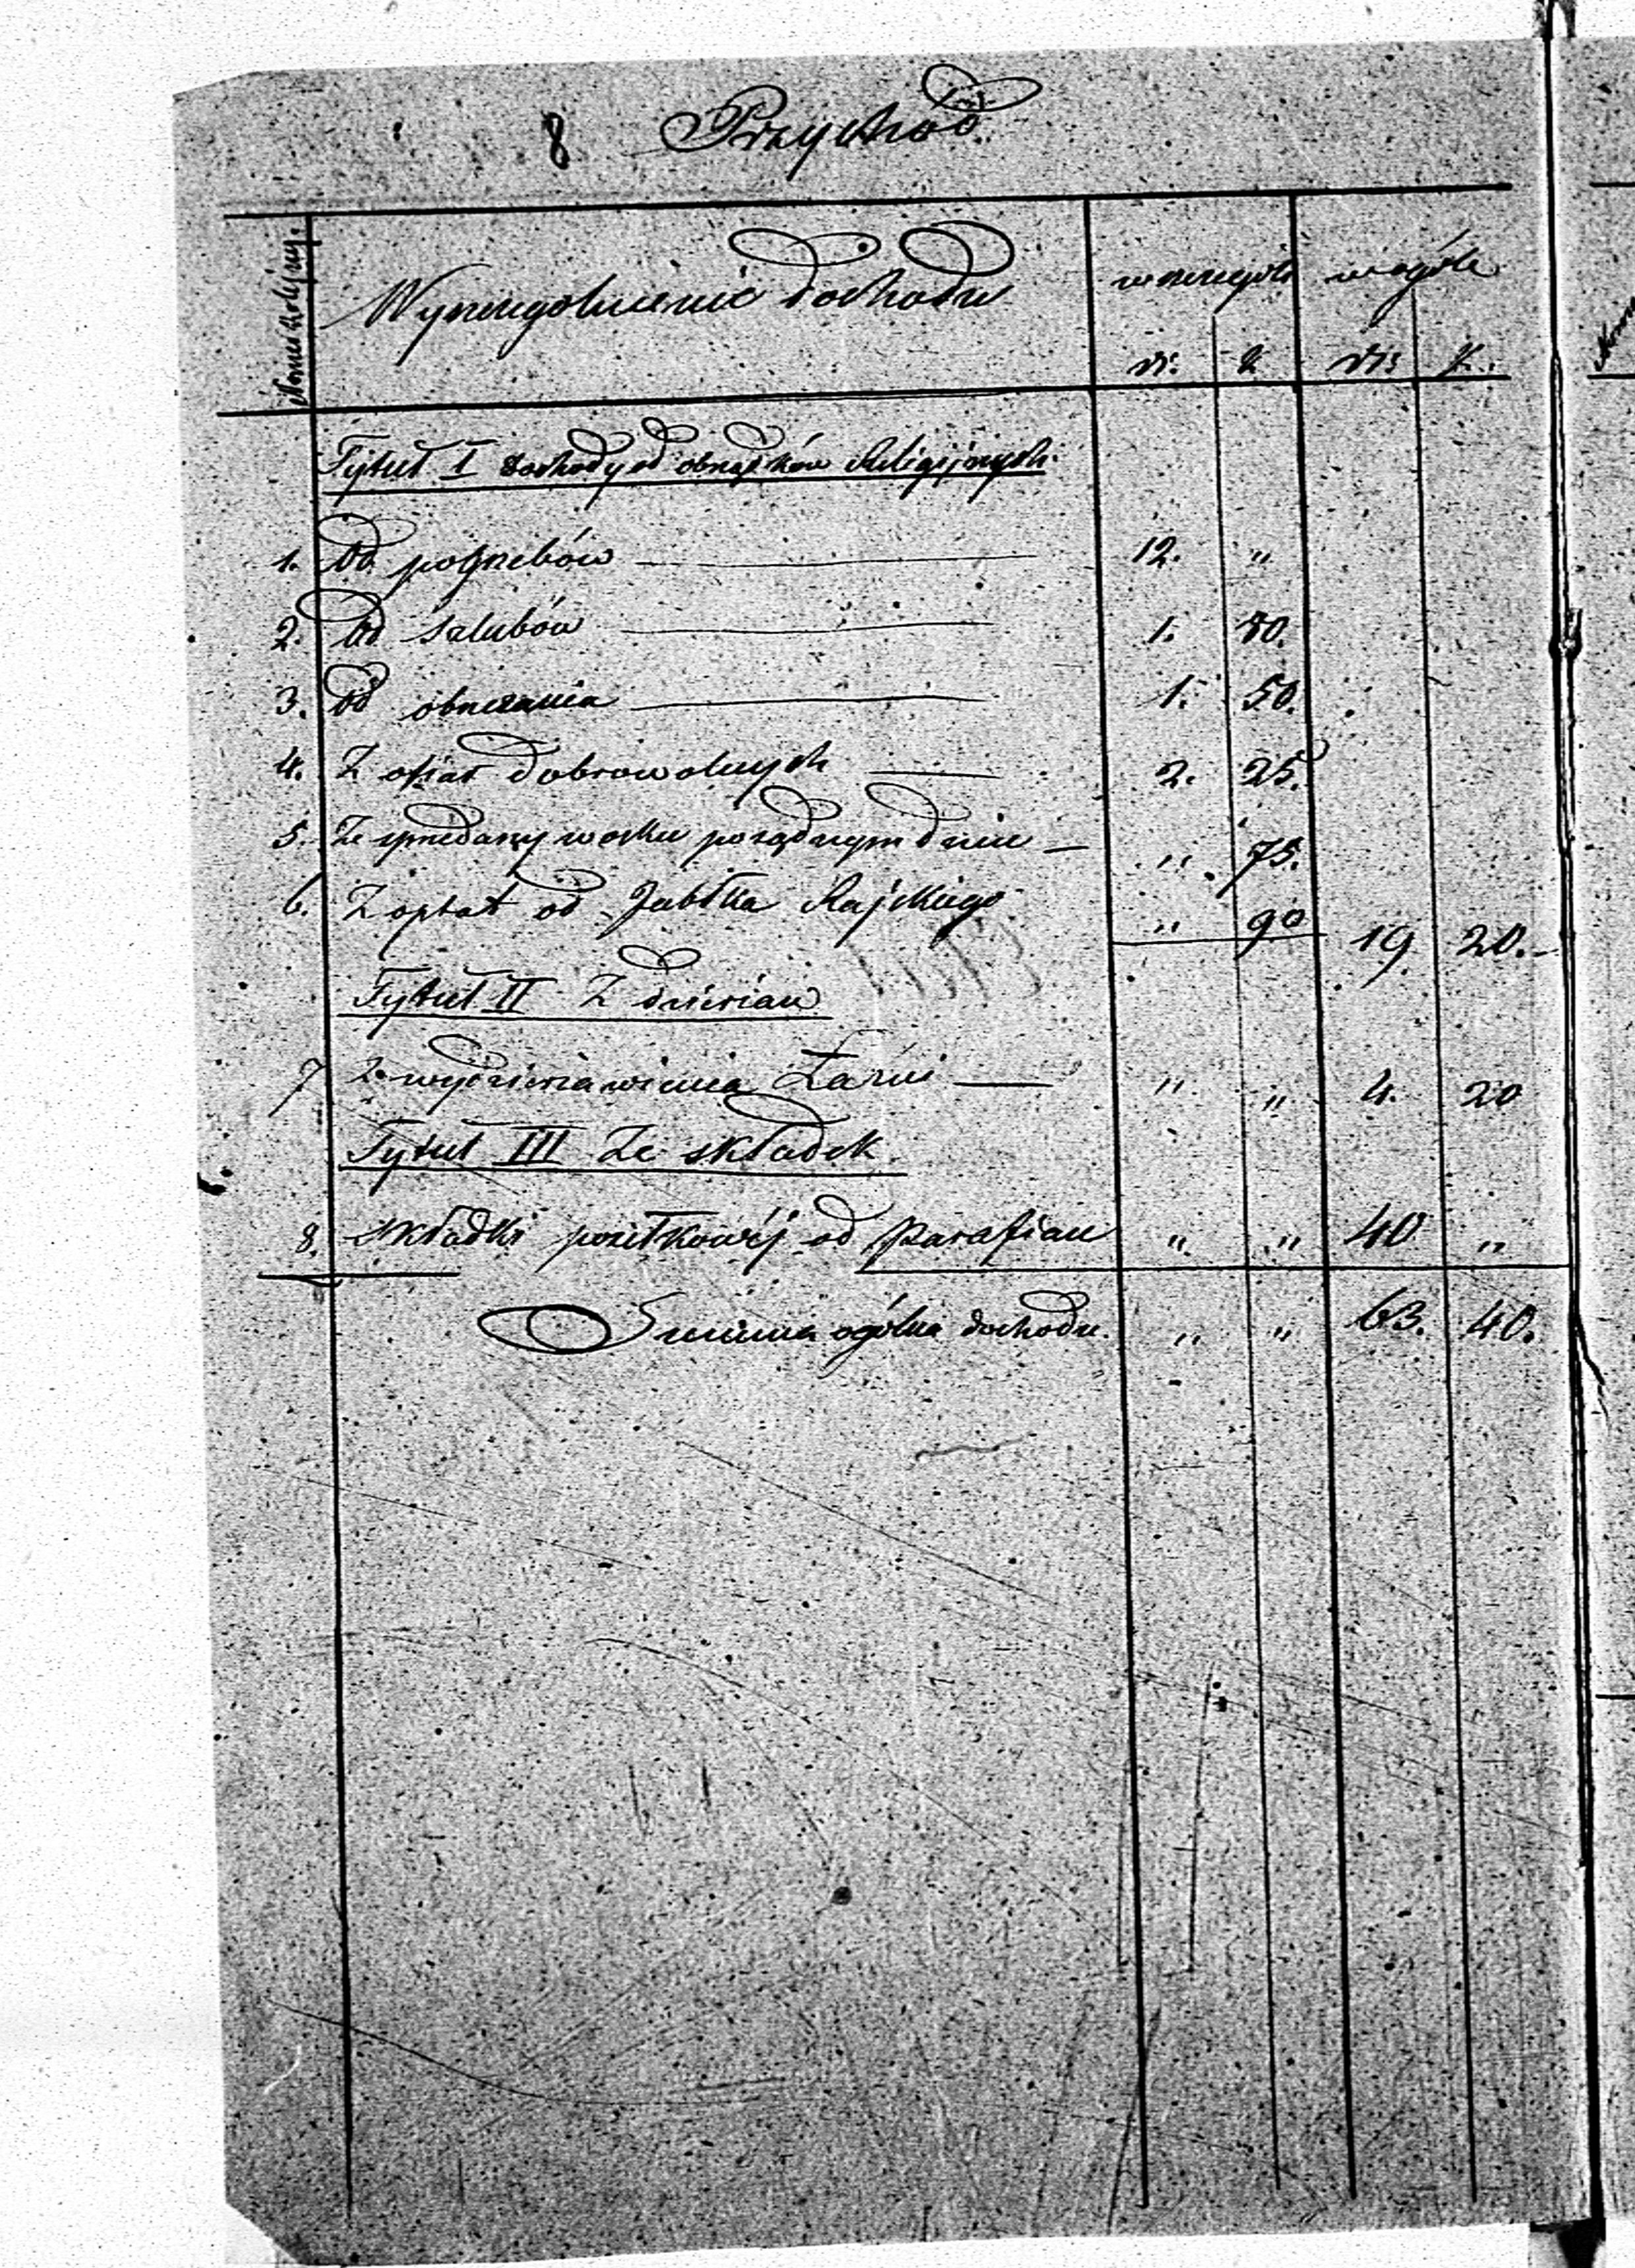 8 Przychód
Numer kolejny.
Wyszczegolnienie dochodu
w szczególe w ogóle
rs: k rs: k.
Tytuł I dochody od obrządków Religijnych.
1. Od pogrzebów 12. „
2. Od szlubów 1. 80.
3. Od obrzezania 1. 50.
4. Z ofiar dobrowolnych 2. 25.
5. Ze sprzedarzy wosku po sądnym dniu „ 75.
6. Z opłat od Jabłka Rajskiego „ 90 19 20.
Tytuł II Z dzierżaw
7 Z wydzierżawienia Łaźni „ „ 4. 20
Tytuł III Ze składek.
8. składki od Parafian „ „ 40 „
Summa ogólna dochodu. „ „ 63. 40.